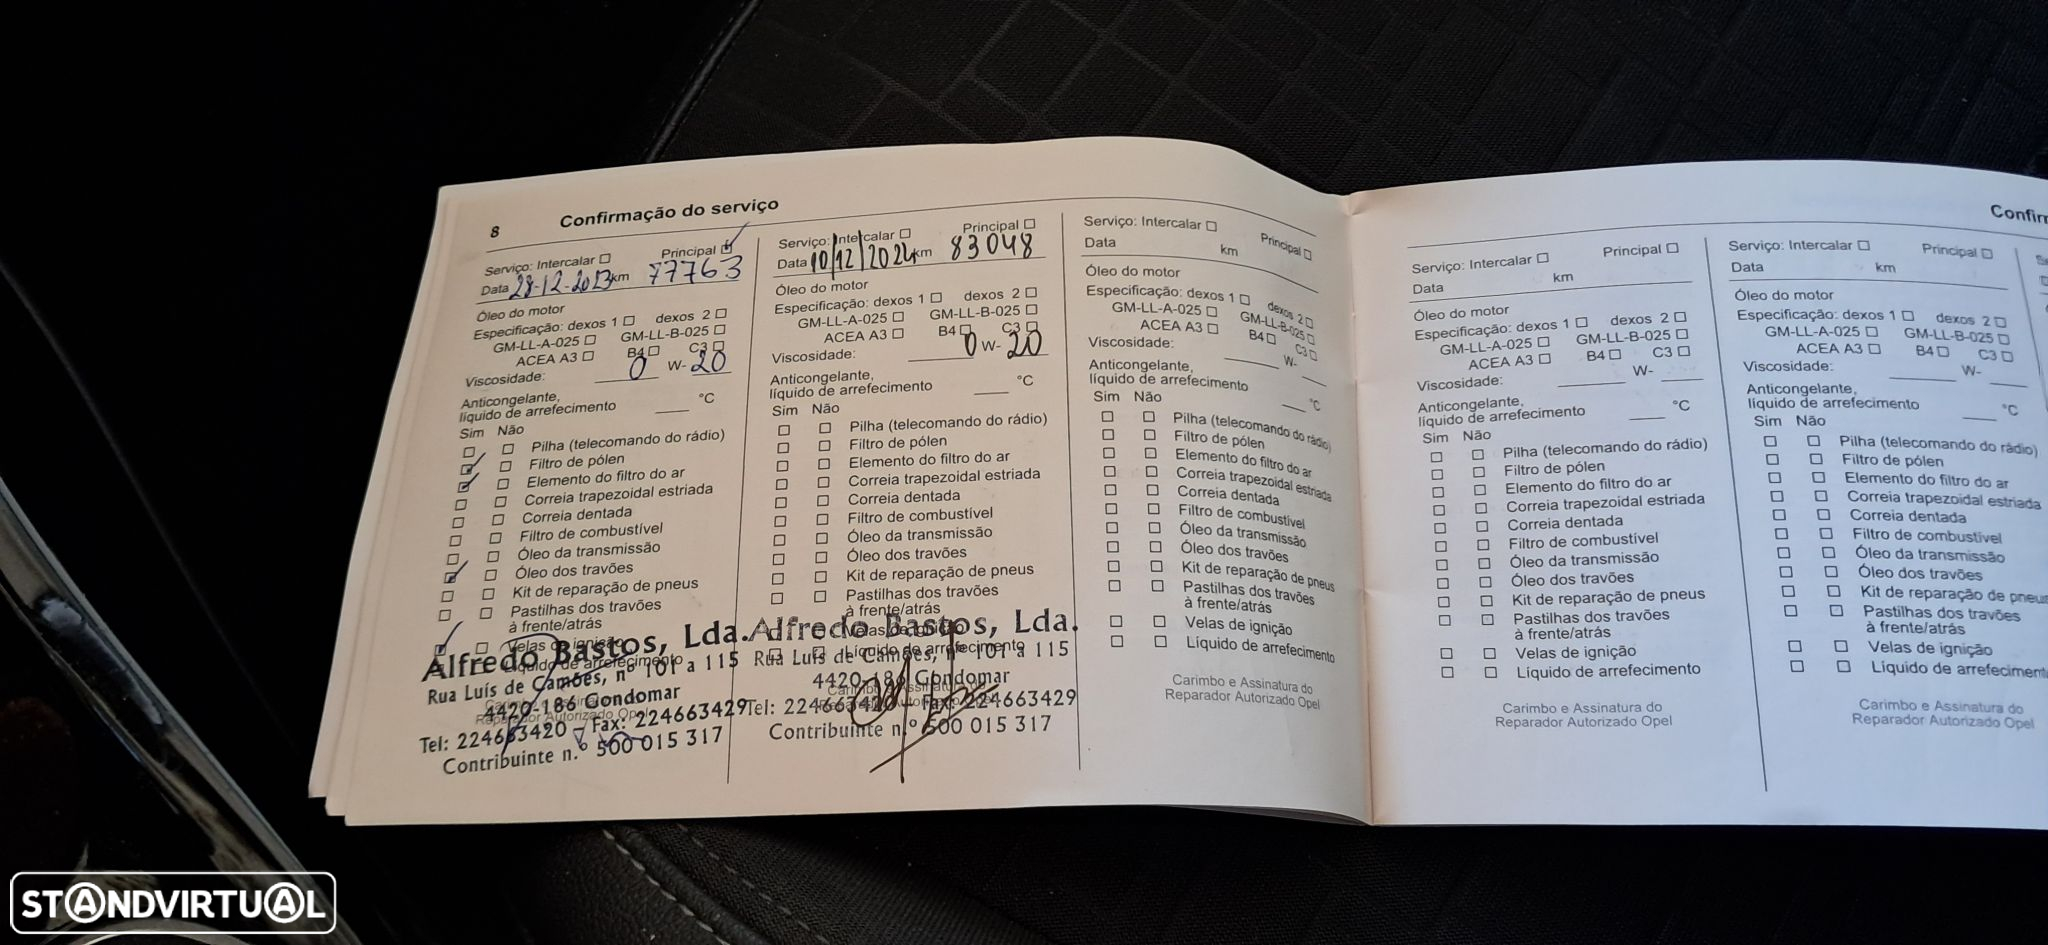 8 Confirmação do serviço
Serviço: Intercalar Principal
Data 28-12-2023 km 77763
Óleo do motor
Especificação: dexos 1 dexos 2
GM-LL-A-025 GM-LL-B-025
ACEA A3 B4 C3
Viscosidade: 0 W- 20
Anticongelante,
líquido de arrefecimento °C
Sim Não
Pilha (telecomando do rádio)
Filtro de pólen
Elemento do filtro do ar
Correia trapezoidal estriada
Correia dentada
Filtro de combustível
Óleo da transmissão
Óleo dos travões
Kit de reparação de pneus
Pastilhas dos travões
à frente/atrás
Velas de ignição
Líquido de arrefecimento
Carimbo e Assinatura do
Reparador Autorizado Opel
Alfredo Bastos, Lda.
Rua Luís de Camões, nº 101 a 115
4420-186 Gondomar
Tel: 224663420 - Fax: 224663429
Contribuinte n.º 500 015 317
Serviço: Intercalar Principal
Data 10/12/2024 km 83048
Óleo do motor
Especificação: dexos 1 dexos 2
GM-LL-A-025 GM-LL-B-025
ACEA A3 B4 C3
Viscosidade: 0 W- 20
Anticongelante,
líquido de arrefecimento °C
Sim Não
Pilha (telecomando do rádio)
Filtro de pólen
Elemento do filtro do ar
Correia trapezoidal estriada
Correia dentada
Filtro de combustível
Óleo da transmissão
Óleo dos travões
Kit de reparação de pneus
Pastilhas dos travões
à frente/atrás
Velas de ignição
Líquido de arrefecimento
Carimbo e Assinatura do
Reparador Autorizado Opel
Alfredo Bastos, Lda.
Rua Luís de Camões, nº 101 a 115
4420-186 Gondomar
Tel: 224663420 Fax: 224663429
Contribuinte n.º 500 015 317
Serviço: Intercalar Principal
Data km
Óleo do motor
Especificação: dexos 1 dexos 2
GM-LL-A-025 GM-LL-B-025
ACEA A3 B4 C3
Viscosidade: W-
Anticongelante,
líquido de arrefecimento °C
Sim Não
Pilha (telecomando do rádio)
Filtro de pólen
Elemento do filtro do ar
Correia trapezoidal estriada
Correia dentada
Filtro de combustível
Óleo da transmissão
Óleo dos travões
Kit de reparação de pneus
Pastilhas dos travões
à frente/atrás
Velas de ignição
Líquido de arrefecimento
Carimbo e Assinatura do
Reparador Autorizado Opel
Confirm
Serviço: Intercalar Principal
Data km
Óleo do motor
Especificação: dexos 1 dexos 2
GM-LL-A-025 GM-LL-B-025
ACEA A3 B4 C3
Viscosidade: W-
Anticongelante,
líquido de arrefecimento °C
Sim Não
Pilha (telecomando do rádio)
Filtro de pólen
Elemento do filtro do ar
Correia trapezoidal estriada
Correia dentada
Filtro de combustível
Óleo da transmissão
Óleo dos travões
Kit de reparação de pneus
Pastilhas dos travões
à frente/atrás
Velas de ignição
Líquido de arrefecimento
Carimbo e Assinatura do
Reparador Autorizado Opel
Serviço: Intercalar Principal
Data km
Óleo do motor
Especificação: dexos 1 dexos 2
GM-LL-A-025 GM-LL-B-025
ACEA A3 B4 C3
Viscosidade: W-
Anticongelante,
líquido de arrefecimento °C
Sim Não
Pilha (telecomando do rádio)
Filtro de pólen
Elemento do filtro do ar
Correia trapezoidal estriada
Correia dentada
Filtro de combustível
Óleo da transmissão
Óleo dos travões
Kit de reparação de pneus
Pastilhas dos travões
à frente/atrás
Velas de ignição
Líquido de arrefecimen
Carimbo e Assinatura do
Reparador Autorizado Opel
STANDVIRTUAL